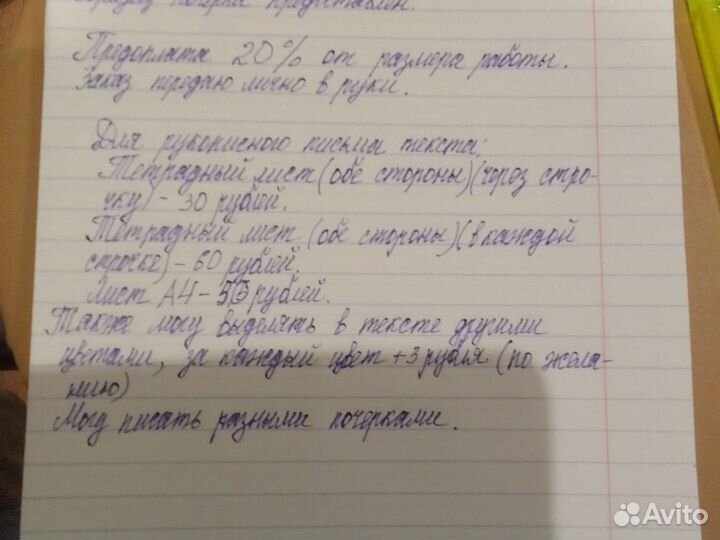 образец почерка предоставлен.
Предоплата 20% от размера работы.
Заказ передаю лично в руки.
Для рукописного письма текста:
Тетрадный лист (обе стороны) (через стро-
чку) - 30 рублей.
Тетрадный лист (обе стороны) (в каждой
строчке) - 60 рублей.
Лист А4 - рублей.
Также могу выделять в тексте другими
цветами, за каждый цвет +3 рубля (по жела-
нию)
Могу писать разными почерками.
Avito